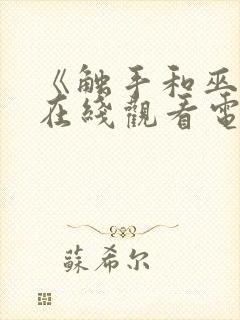 《触手和巫
在綫觀看電
蘇希尔